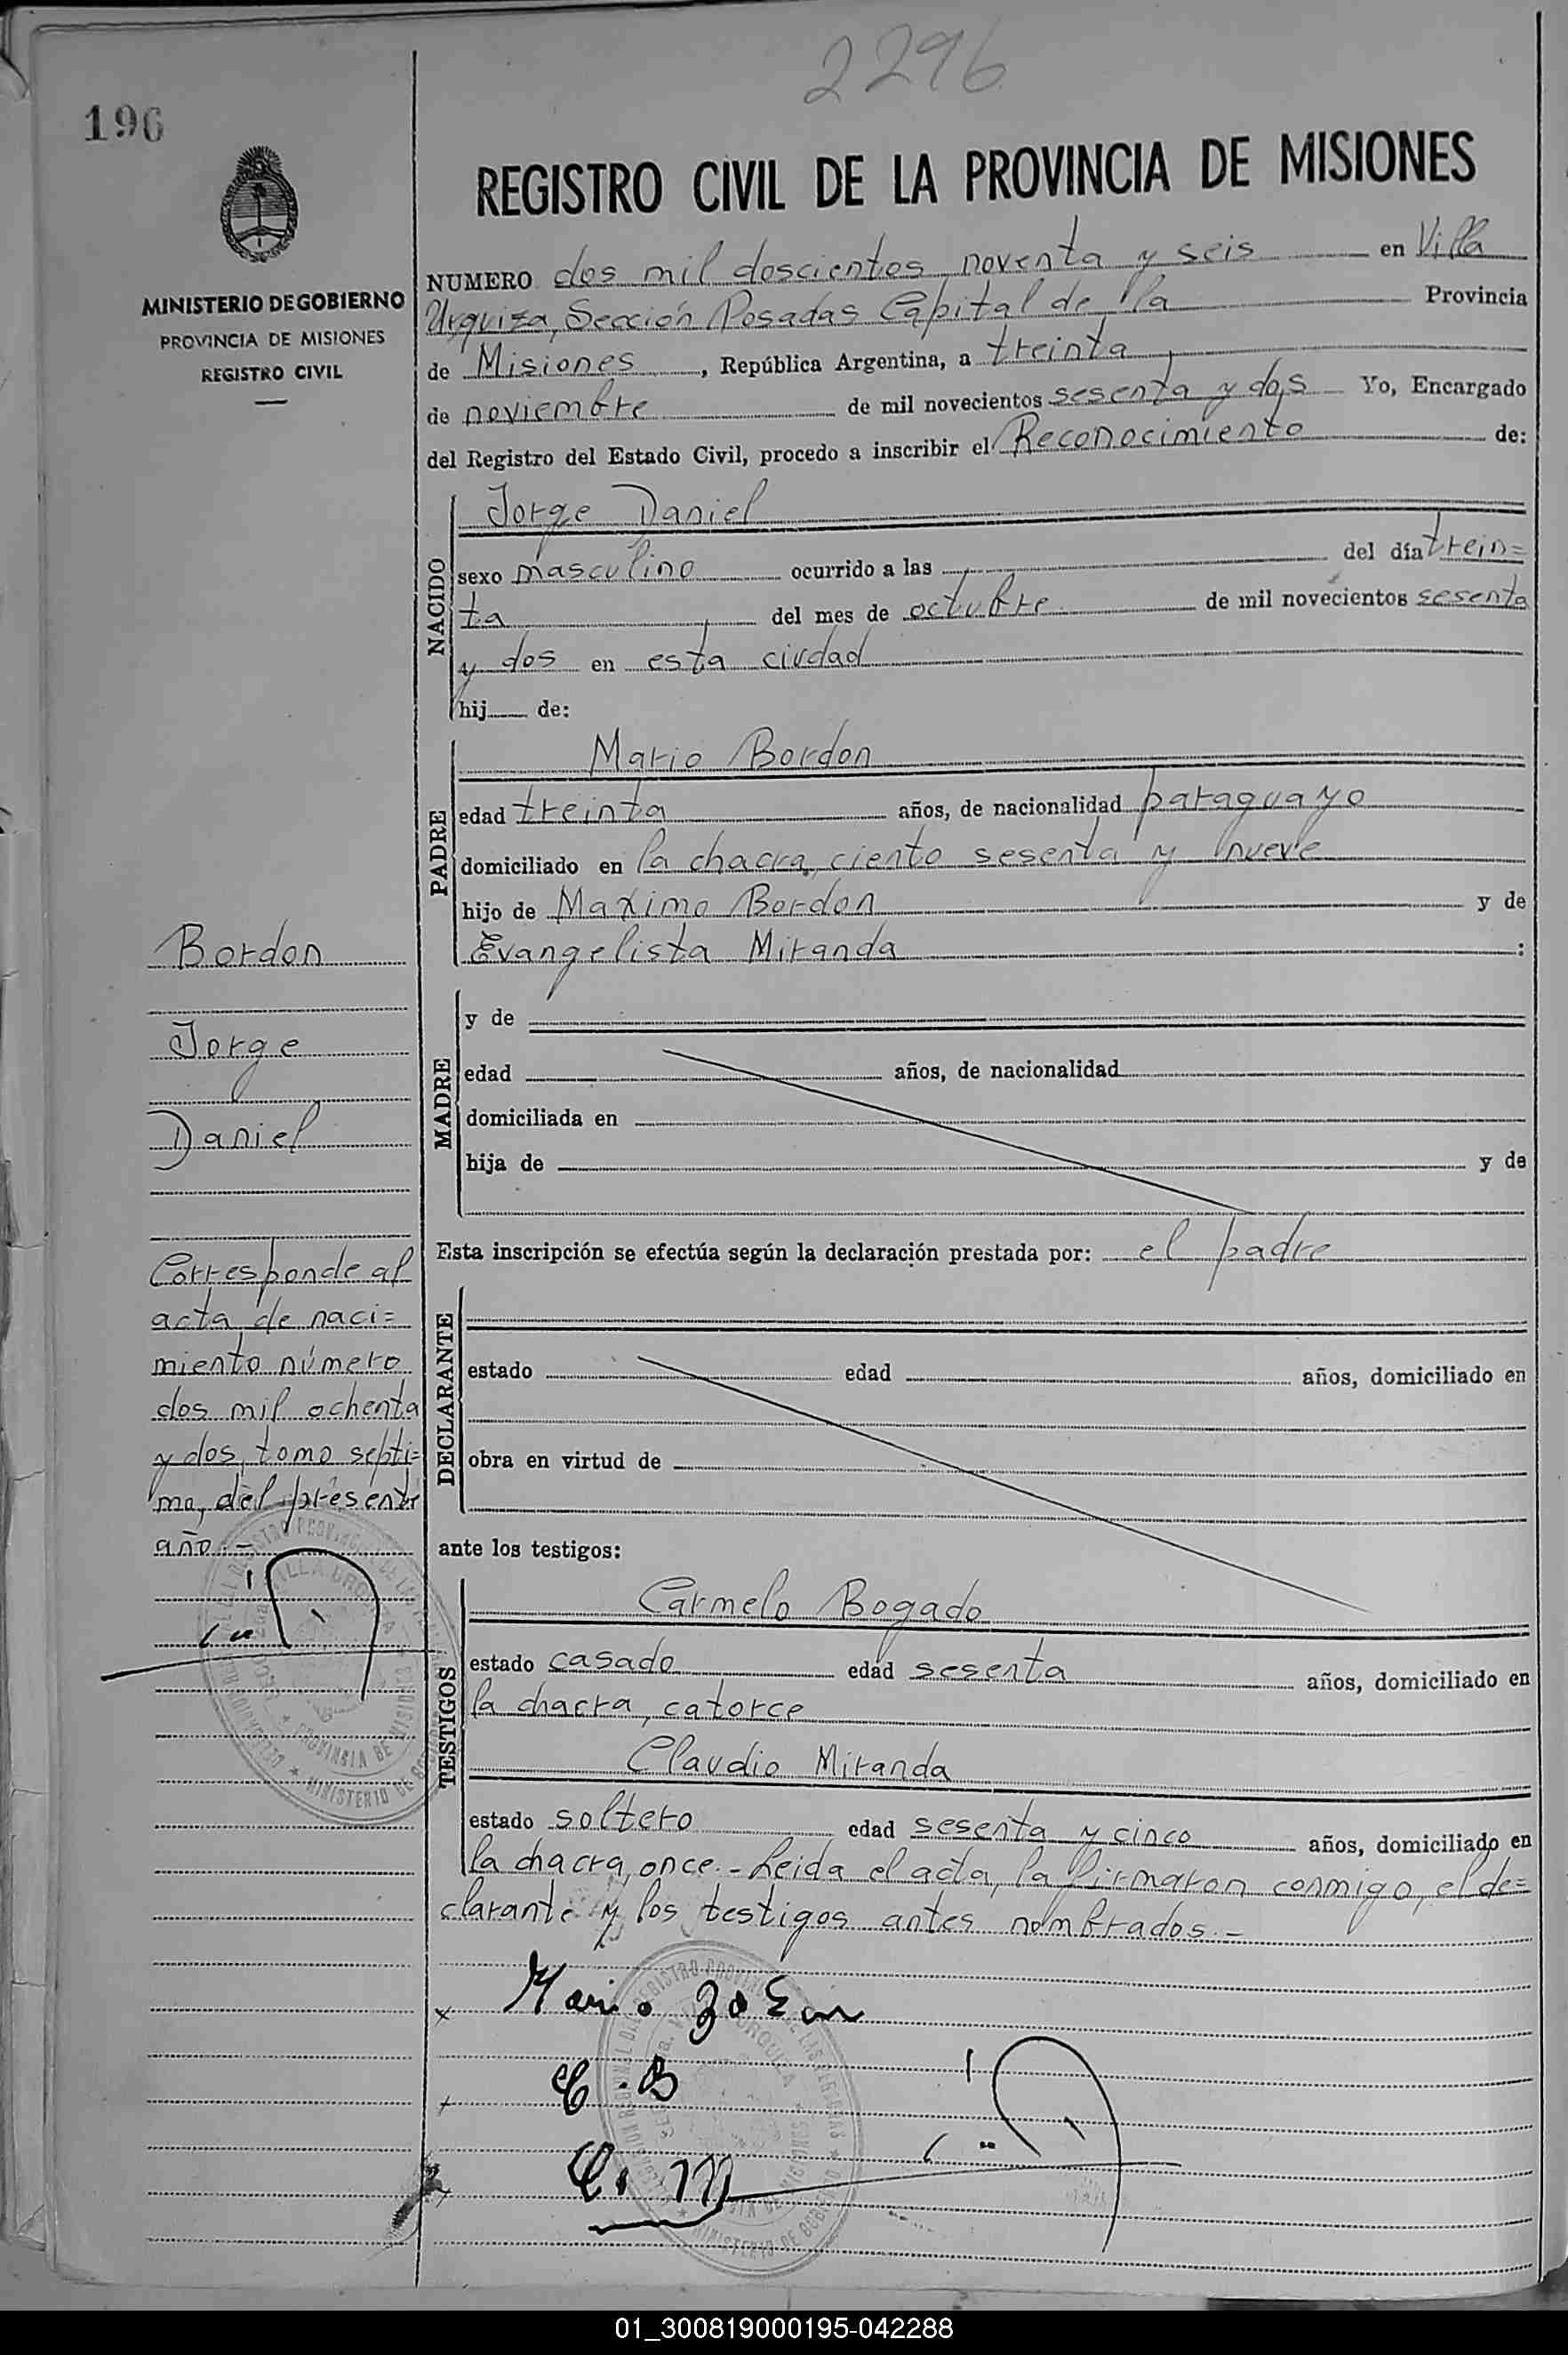 2296
196
MINISTERIO DE GOBIERNO
PROVINCIA DE MISIONES
REGISTRO CIVIL
REGISTRO CIVIL DE LA PROVINCIA DE MISIONES
NUMERO dos mil doscientos noventa y seis en Villa
Urquiza, Sección Posadas Capital de la Provincia
de Misiones, República Argentina, a treinta
de noviembre de mil novecientos sesenta y dos Yo, Encargado
del Registro del Estado Civil, procedo a inscribir el Reconocimiento de:
NACIDO
Jorge Daniel
sexo masculino ocurrido a las del día trein=
ta del mes de octubre de mil novecientos sesenta
y dos en esta ciudad
hij de:
PADRE
Mario Bordon
edad treinta años, de nacionalidad paraguayo
domiciliado en la chacra, ciento sesenta y nueve
hijo de Maximo Bordon y de
Evangelista Miranda :
MADRE
y de
edad años, de nacionalidad
domiciliada en
hija de y de
Esta inscripción se efectúa según la declaración prestada por: el padre
DECLARANTE
estado edad años, domiciliado en
obra en virtud de
ante los testigos:
TESTIGOS
Carmelo Bogado
estado casado edad sesenta años, domiciliado en
la chacra, catorce
Claudio Miranda
estado soltero edad sesenta y cinco años, domiciliado en
la chacra, once.- Leida el acta, la firmaron conmigo, el de=
clarante y los testigos antes nombrados.-
Bordon
Jorge
Daniel
Corresponde al
acta de naci=
miento número
dos mil ochenta
y dos, tomo septi=
mo, del presente
año.-
x Mario
C. B
C. M
01_300819000195-042288